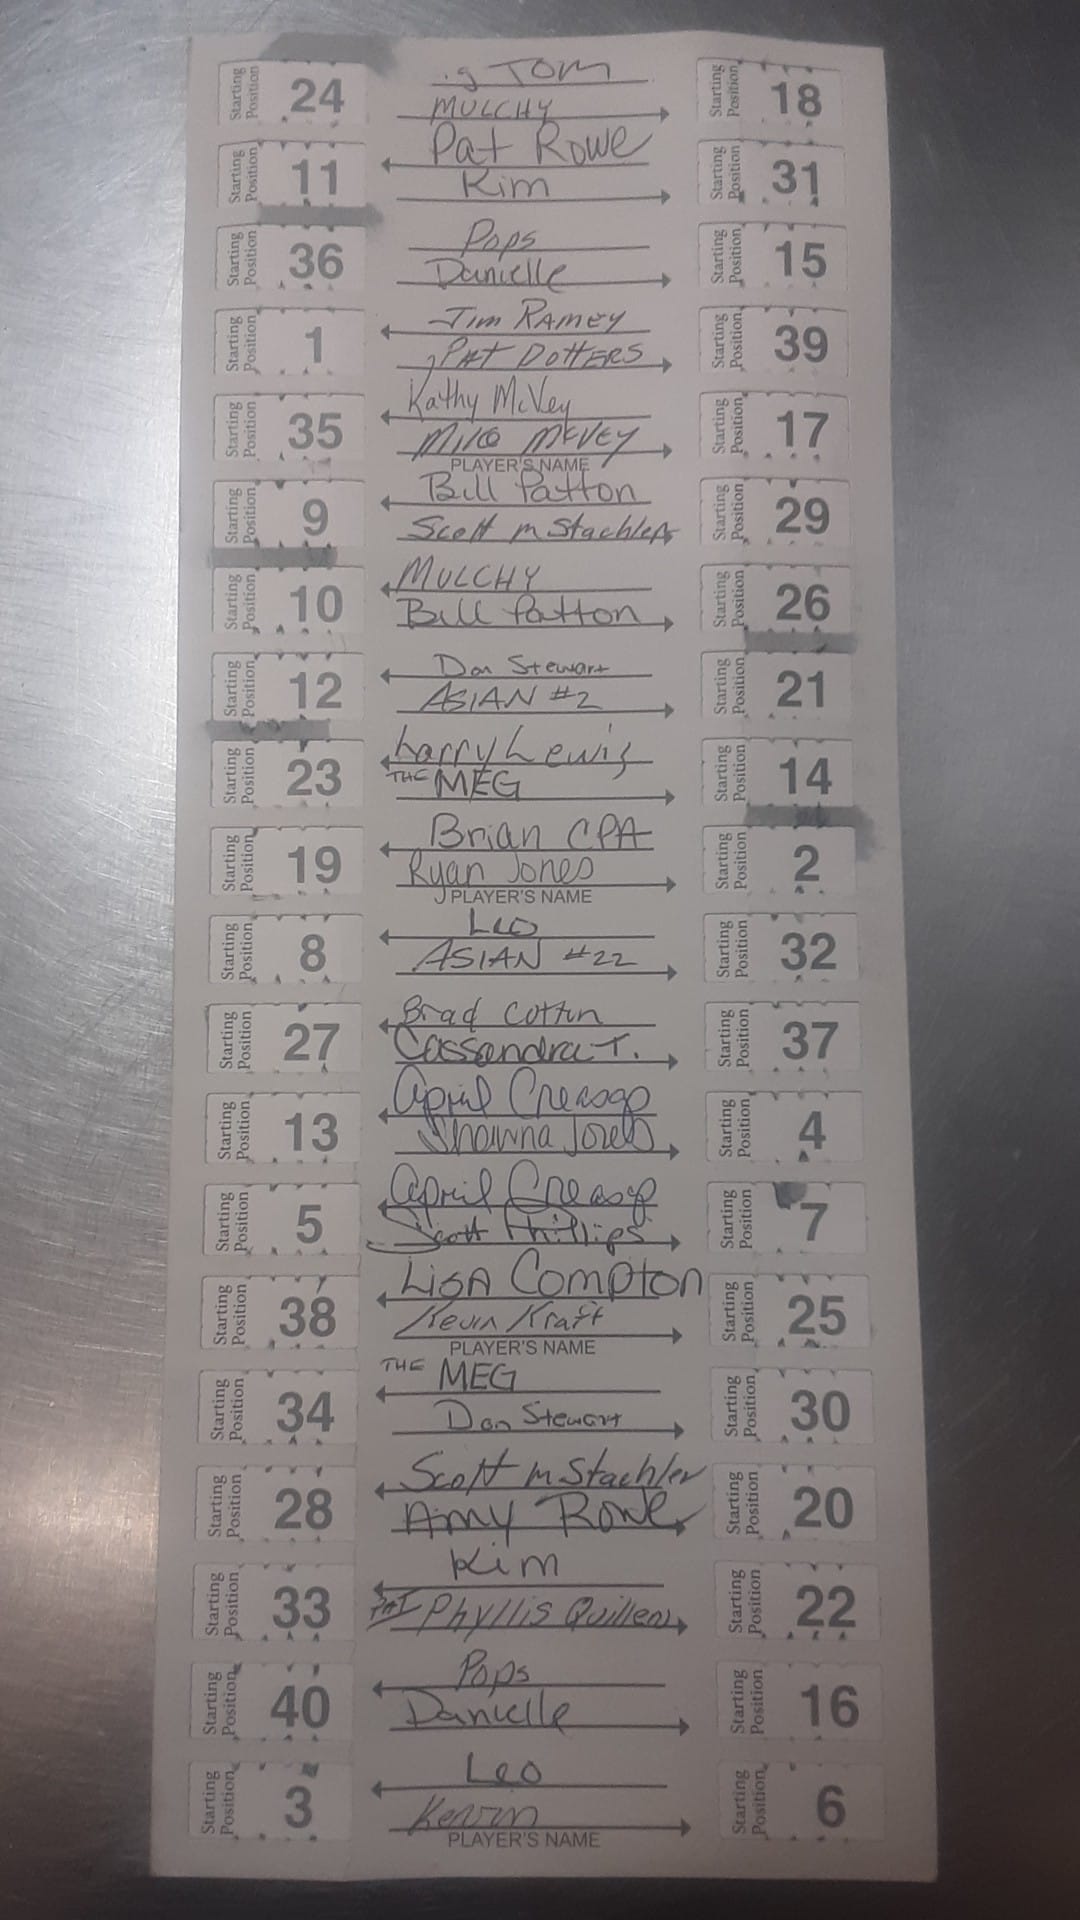 Starting Position 24 . g TOM Starting Position 18
MULCHY
Starting Position 11 Pat Rowe Starting Position 31
Kim
Starting Position 36 Pops Starting Position 15
Danielle
Starting Position 1 Jim RAMEY Starting Position 39
PAT DOTTERS
Starting Position 35 Kathy McVey Starting Position 17
MIKE MCVEY
PLAYER'S NAME
Starting Position 9 Bill Patton Starting Position 29
Scott m Stachler
Starting Position 10 MULCHY Starting Position 26
Bill Patton
Starting Position 12 Don Stewart Starting Position 21
ASIAN #2
Starting Position 23 Larry Lewis Starting Position 14
THE MEG
Starting Position 19 Brian CPA Starting Position 2
Ryan Jones
PLAYER'S NAME
Starting Position 8 Leo Starting Position 32
ASIAN #22
Starting Position 27 Brad Cotton Starting Position 37
Cassandra T.
Starting Position 13 April Creasap Starting Position 4
Shawna Jones
Starting Position 5 April Creasap Starting Position 7
Scott Phillips
Starting Position 38 LisA Compton Starting Position 25
Kevin Kraft
PLAYER'S NAME
Starting Position 34 THE MEG Starting Position 30
Don Stewart
Starting Position 28 Scott m Stachler Starting Position 20
Amy Rowe
Starting Position 33 Kim Starting Position 22
PAT Phyllis Quillens
Starting Position 40 Pops Starting Position 16
Danielle
Starting Position 3 Leo Starting Position 6
Kevin
PLAYER'S NAME